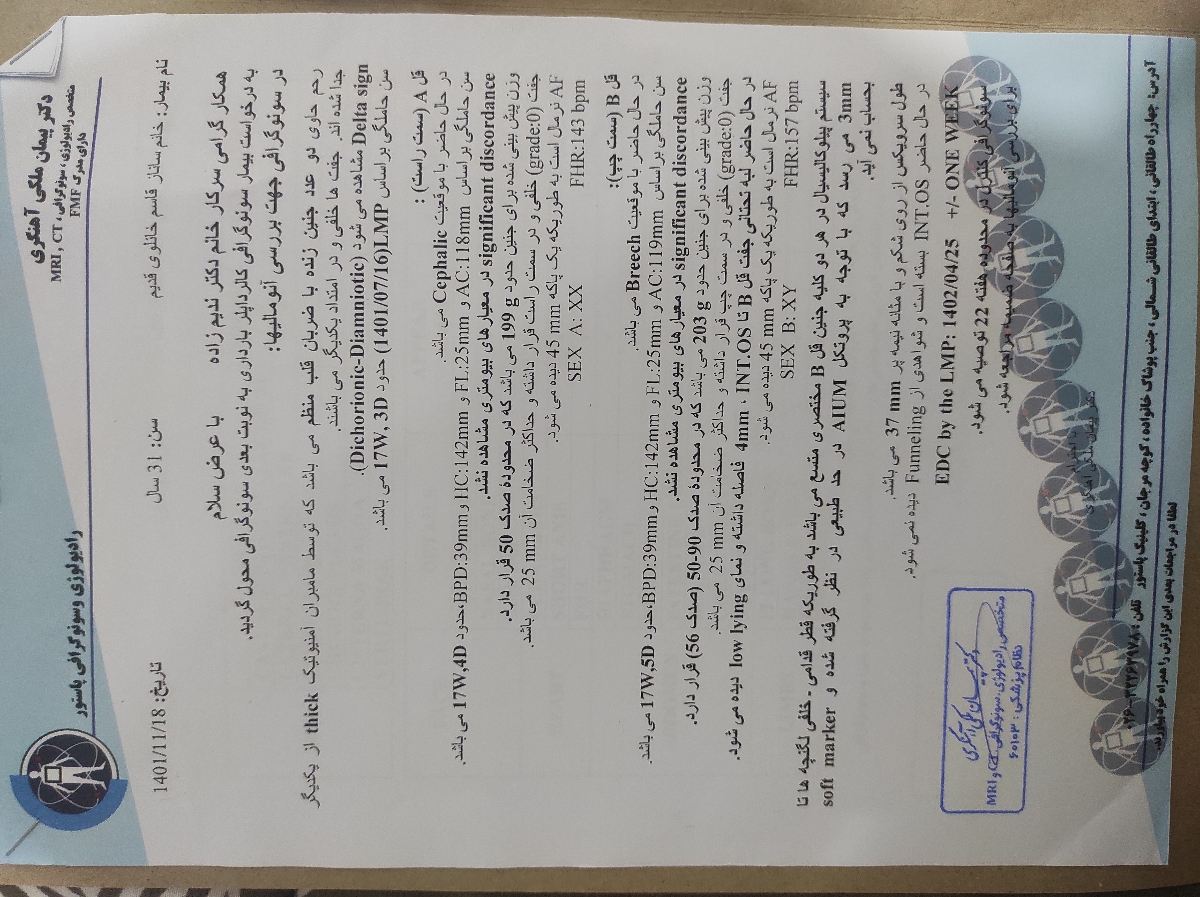 رادیولوژی وسونوگرافی پاستور
دکتر پیمان ملکی آهنگری
متخصص رادیولوژی، سونوگرافی، MRI, CT
دارای مدرک FMF
نام بیمار: خانم ساناز قاسم خانلوی قدیم
سن: 31 سال
تاریخ: 1401/11/18
همکار گرامی سرکار خانم دکتر ندیم زاده
با عرض سلام
به درخواست بیمار سونوگرافی کالرداپلر بارداری به نوبت بعدی سونوگرافی محول گردید.
در سونوگرافی جهت بررسی آنومالیها:
رحم حاوی دو عدد جنین زنده با ضربان قلب منظم می باشد که توسط مامبران امنیوتیک thick از یکدیگر
جدا شده اند. جفت ها خلفی و در امتداد یکدیگر می باشند.
Delta sign مشاهده می شود (Dichorionic-Diamniotic).
سن حاملگی بر اساس LMP(1401/07/16) حدود 17W, 3D می باشد.
قل A (سمت راست) :
در حال حاضر با موقعیت Cephalic می باشد.
سن حاملگی بر اساس AC:118mm و FL:25mm و HC:142mm و BPD:39mm، حدود 17W,4D می باشد.
significant discordance در معیار های بیومتری مشاهده نشد.
وزن پیش بینی شده برای جنین حدود 199 g می باشد که در محدودۀ صدک 50 قرار دارد.
جفت (grade:0) خلفی و در سمت راست قرار داشته و حداکثر ضخامت آن 25 mm می باشد.
AF نرمال است به طوریکه یک پاکه 45 mm دیده می شود.
FHR:143 bpm SEX A: XX
قل B (سمت چپ):
در حال حاضر با موقعیت Breech می باشد.
سن حاملگی بر اساس AC:119mm و FL:25mm و HC:142mm و BPD:39mm، حدود 17W,5D می باشد.
significant discordance در معیار های بیومتری مشاهده نشد.
وزن پیش بینی شده برای جنین حدود 203 g می باشد که در محدودۀ صدک 50-90 (صدک 56) قرار دارد.
جفت (grade:0) خلفی و در سمت چپ قرار داشته و حداکثر ضخامت آن 25 mm می باشد.
در حال حاضر لبه تحتانی جفت قل B تا INT.OS ، 4mm فاصله داشته و نمای low lying دیده می شود.
AF نرمال است به طوریکه یک پاکه 45 mm دیده می شود.
FHR:157 bpm SEX B: XY
سیستم پیلوکالیسیل در هر دو کلیه جنین قل B مختصری متسع می باشد به طوریکه قطر قدامی - خلفی لگنچه ها تا
3mm می رسد که با توجه به پروتکل AIUM در حد طبیعی در نظر گرفته شده و soft marker
بحساب نمی آید.
طول سرویکس از روی شکم و با مثانه نیمه پر 37 mm می باشد.
در حال حاضر INT.OS بسته است و شواهدی از Funneling دیده نمی شود.
EDC by the LMP: 1402/04/25 +/- ONE WEEK
سونوگرافی کنترل در محدوده هفته 22 توصیه می شود.
برای بررسی آنومالیها به صفحه ضمیمه مراجعه شود.
متخصص رادیولوژی، سونوگرافی و MRI
نظام پزشکی: ۶۰۱۰۳
آدرس: چهارراه طالقانی، ابتدای طالقانی شمالی، جنب پوشاک خانواده، کوچه مرجان، کلینیک پاستور
لطفا در مراجعات بعدی این گزارش را همراه خود بیاورید.